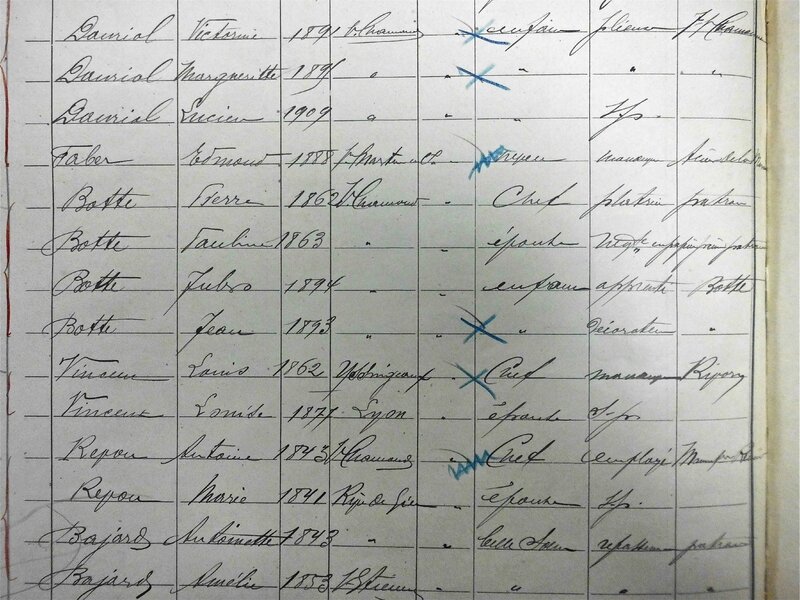 Dauriol Victorine 1891 St Chamond " enfant plieuse St Chamond
Dauriol Margueritte 1895 " " " " "
Dauriol Lucien 1909 " " " s.p.
Faber Edmond 1888 St Martin " manœuv
Botte Pierre 1862 St Chamond " Chef platrier patron
Botte Pauline 1863 " " épouse patron
Botte 1894 " " enfant apprenti Botte
Botte Jean 1893 " " " Décorateur "
Vincent Louis 1862 Yssingeaux " Chef manœuv
Vincent Louise 1871 Lyon " épouse s.p.
Repou Antoine 1843 St Chamond " Chef employé
Repou Marie 1841 Rive de Gier " épouse s.p.
Bajard Antoinette 1843 " " belle Sœur repasseuse patron
Bajard Amélie 1853 St Etienne " " " "